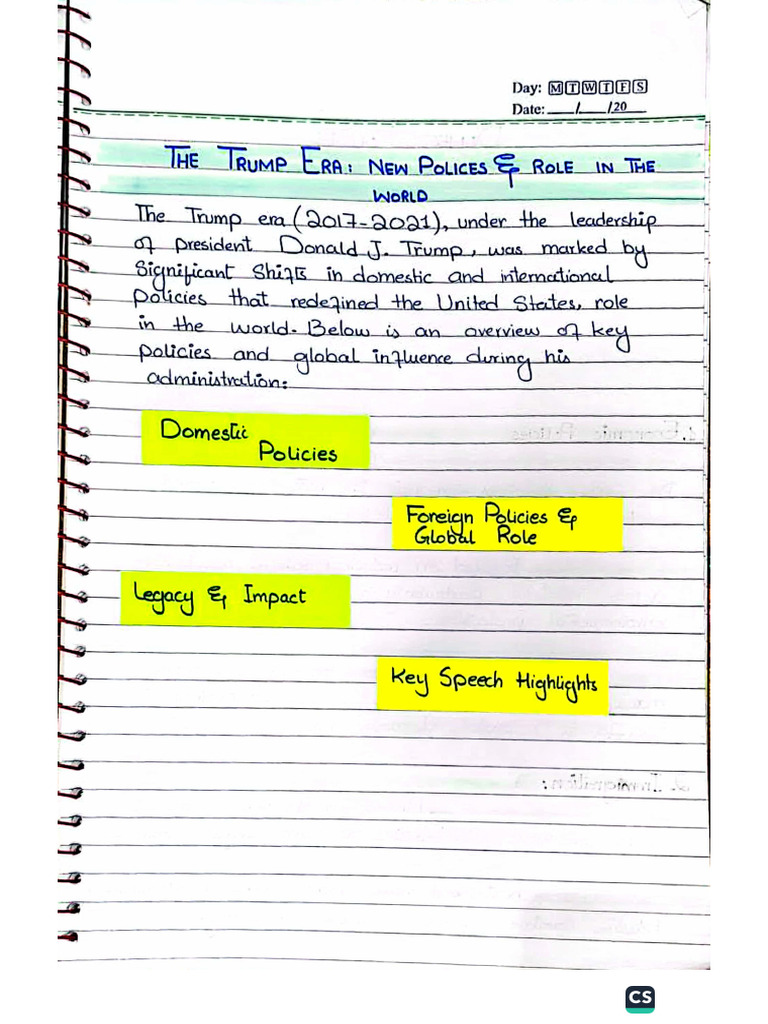 Day: M T W T F S
Date: ___/___/20___
THE TRUMP ERA: NEW POLICES & ROLE IN THE
WORLD
The Trump era (2017-2021), under the leadership
of president Donald J. Trump, was marked by
Significant Shifts in domestic and international
policies that redefined the United States, role
in the world. Below is an overview of key
policies and global influence during his
administration:
Domestic
Policies
Foreign Policies &
Global Role
Legacy & Impact
Key Speech Highlights
CS